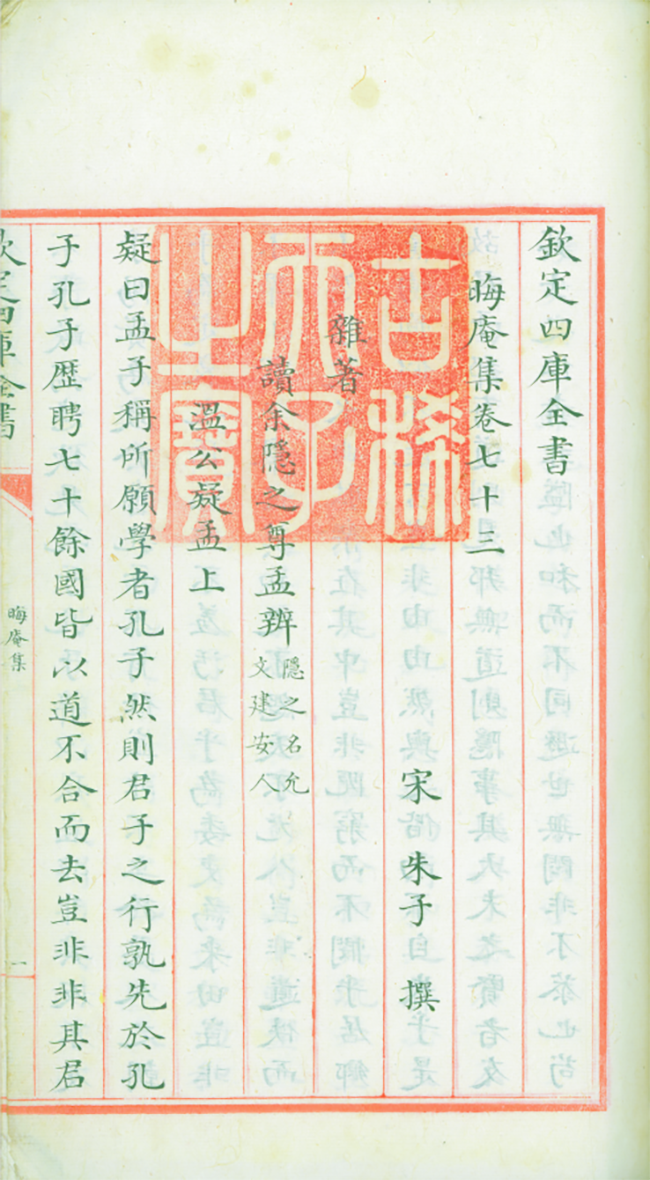 欽定四庫全書
晦庵集卷七十三
宋 朱子 撰
雜著
讀余隱之尊孟辨
隱之名允
文建安人
溫公疑孟上
疑曰孟子稱所願學者孔子然則君子之行孰先於孔
子孔子歴聘七十餘國皆以道不合而去豈非非其君
欽定四庫全書
晦庵集
一
古稀
天子
之寶